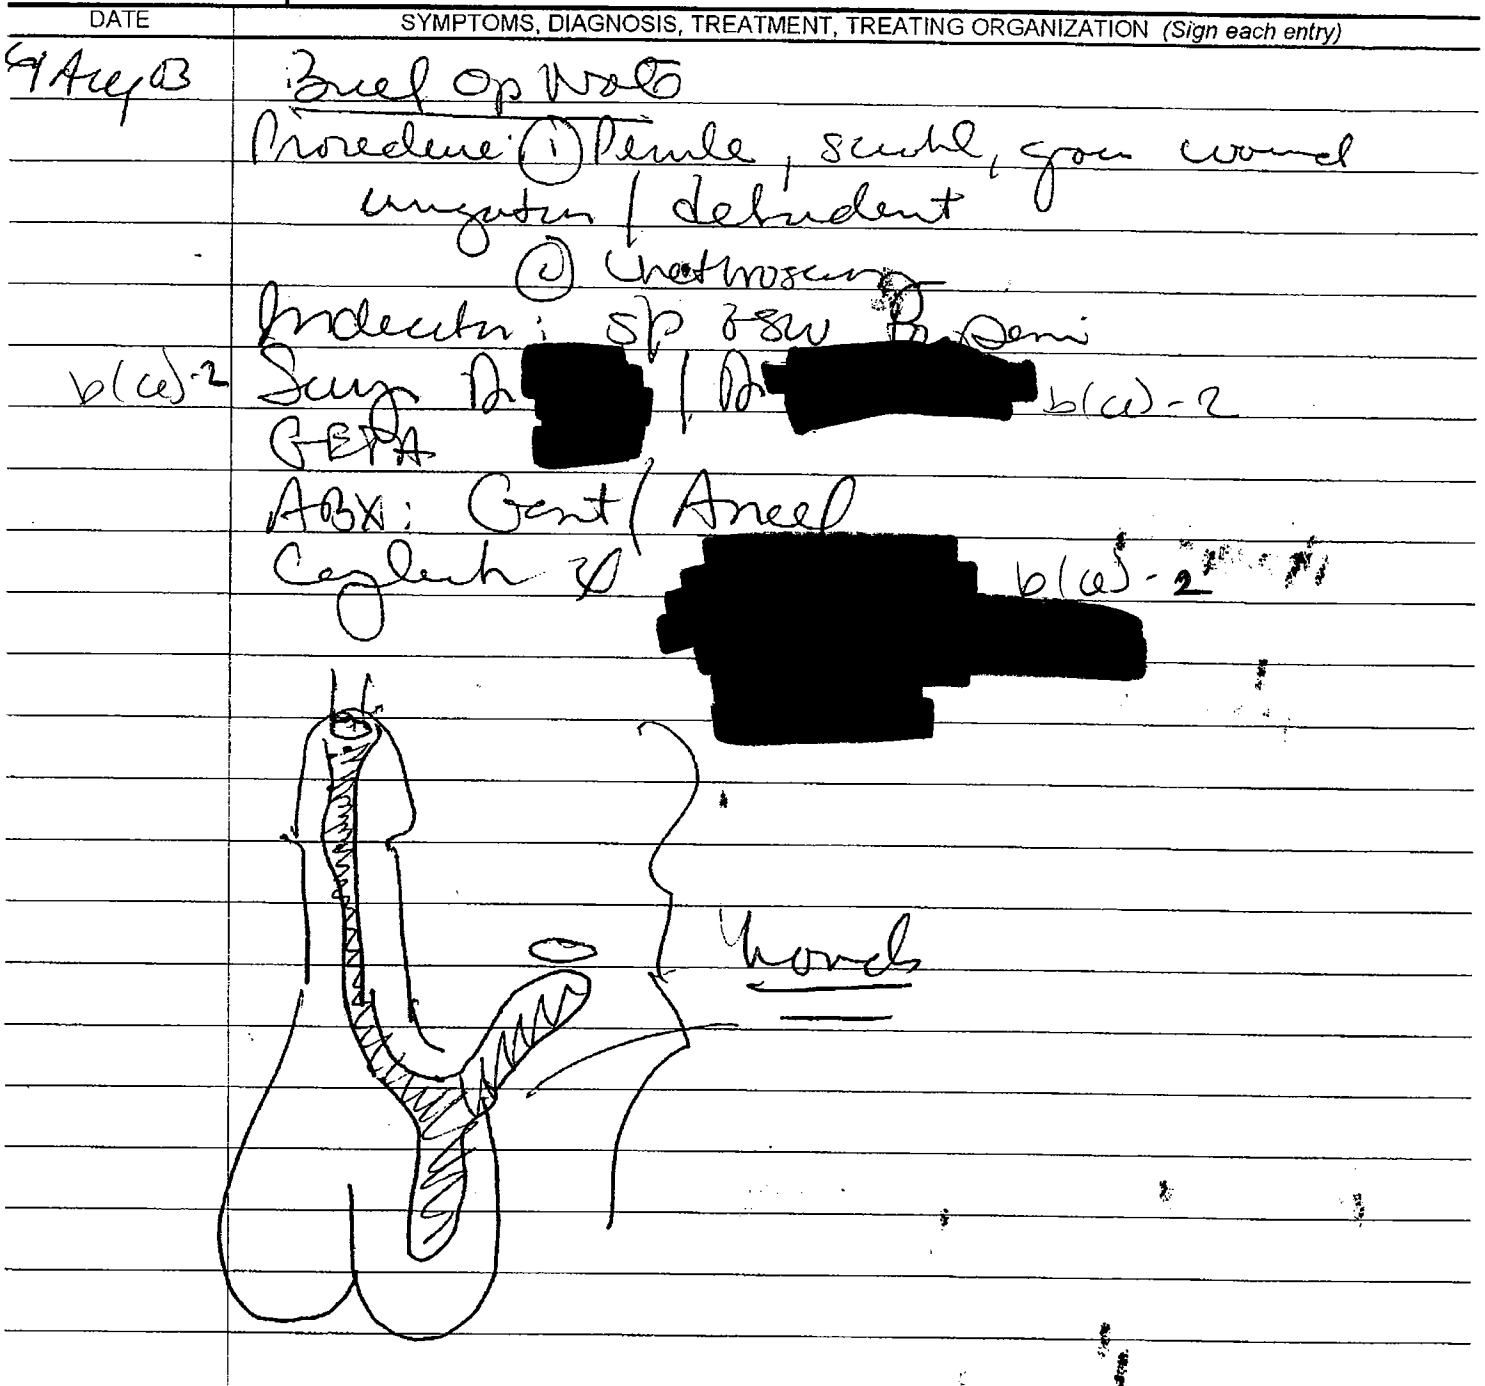 DATE SYMPTOMS, DIAGNOSIS, TREATMENT, TREATING ORGANIZATION (Sign each entry)
Aug 03 Brief Op Note
Procedure: ① Penile, scrotal, groin wound
irrigation / debridement
② Urethroscopy
Indication: SP GSW
b(6)-2 Surg Dr / Dr b(6)-2
GETA
ABX: Gent / Ancef
b(6)-2
Wounds